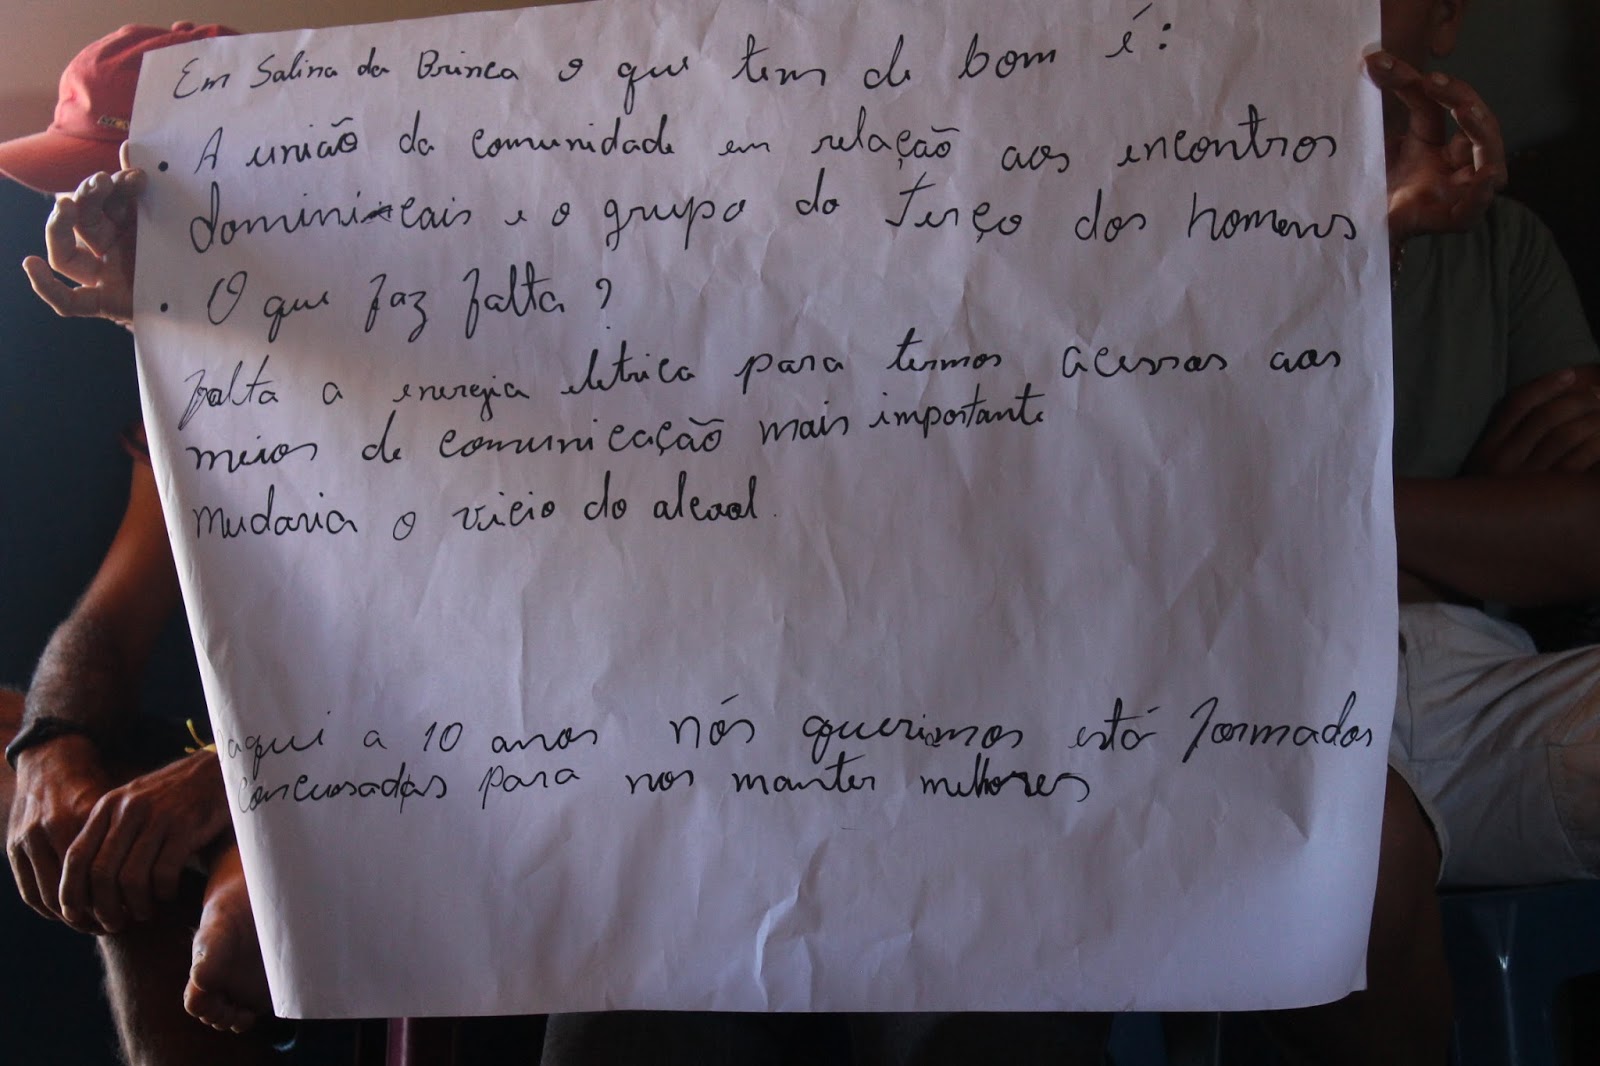 Em Salina da Brinca o que tem de bom é:
• A união da comunidade em relação aos encontros
dominicais e o grupo do Terço dos homens
• O que faz falta?
falta a energia eletrica para termos acessos aos
meios de comunicação mais importante
mudaria o vicio do alcool.
daqui a 10 anos nós querimos está formados
concursados para nos manter melhores